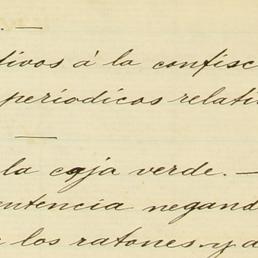 . —
tivos á la confisc
periodicos relati
la caja verde. —
entencia negand
los ratones y a